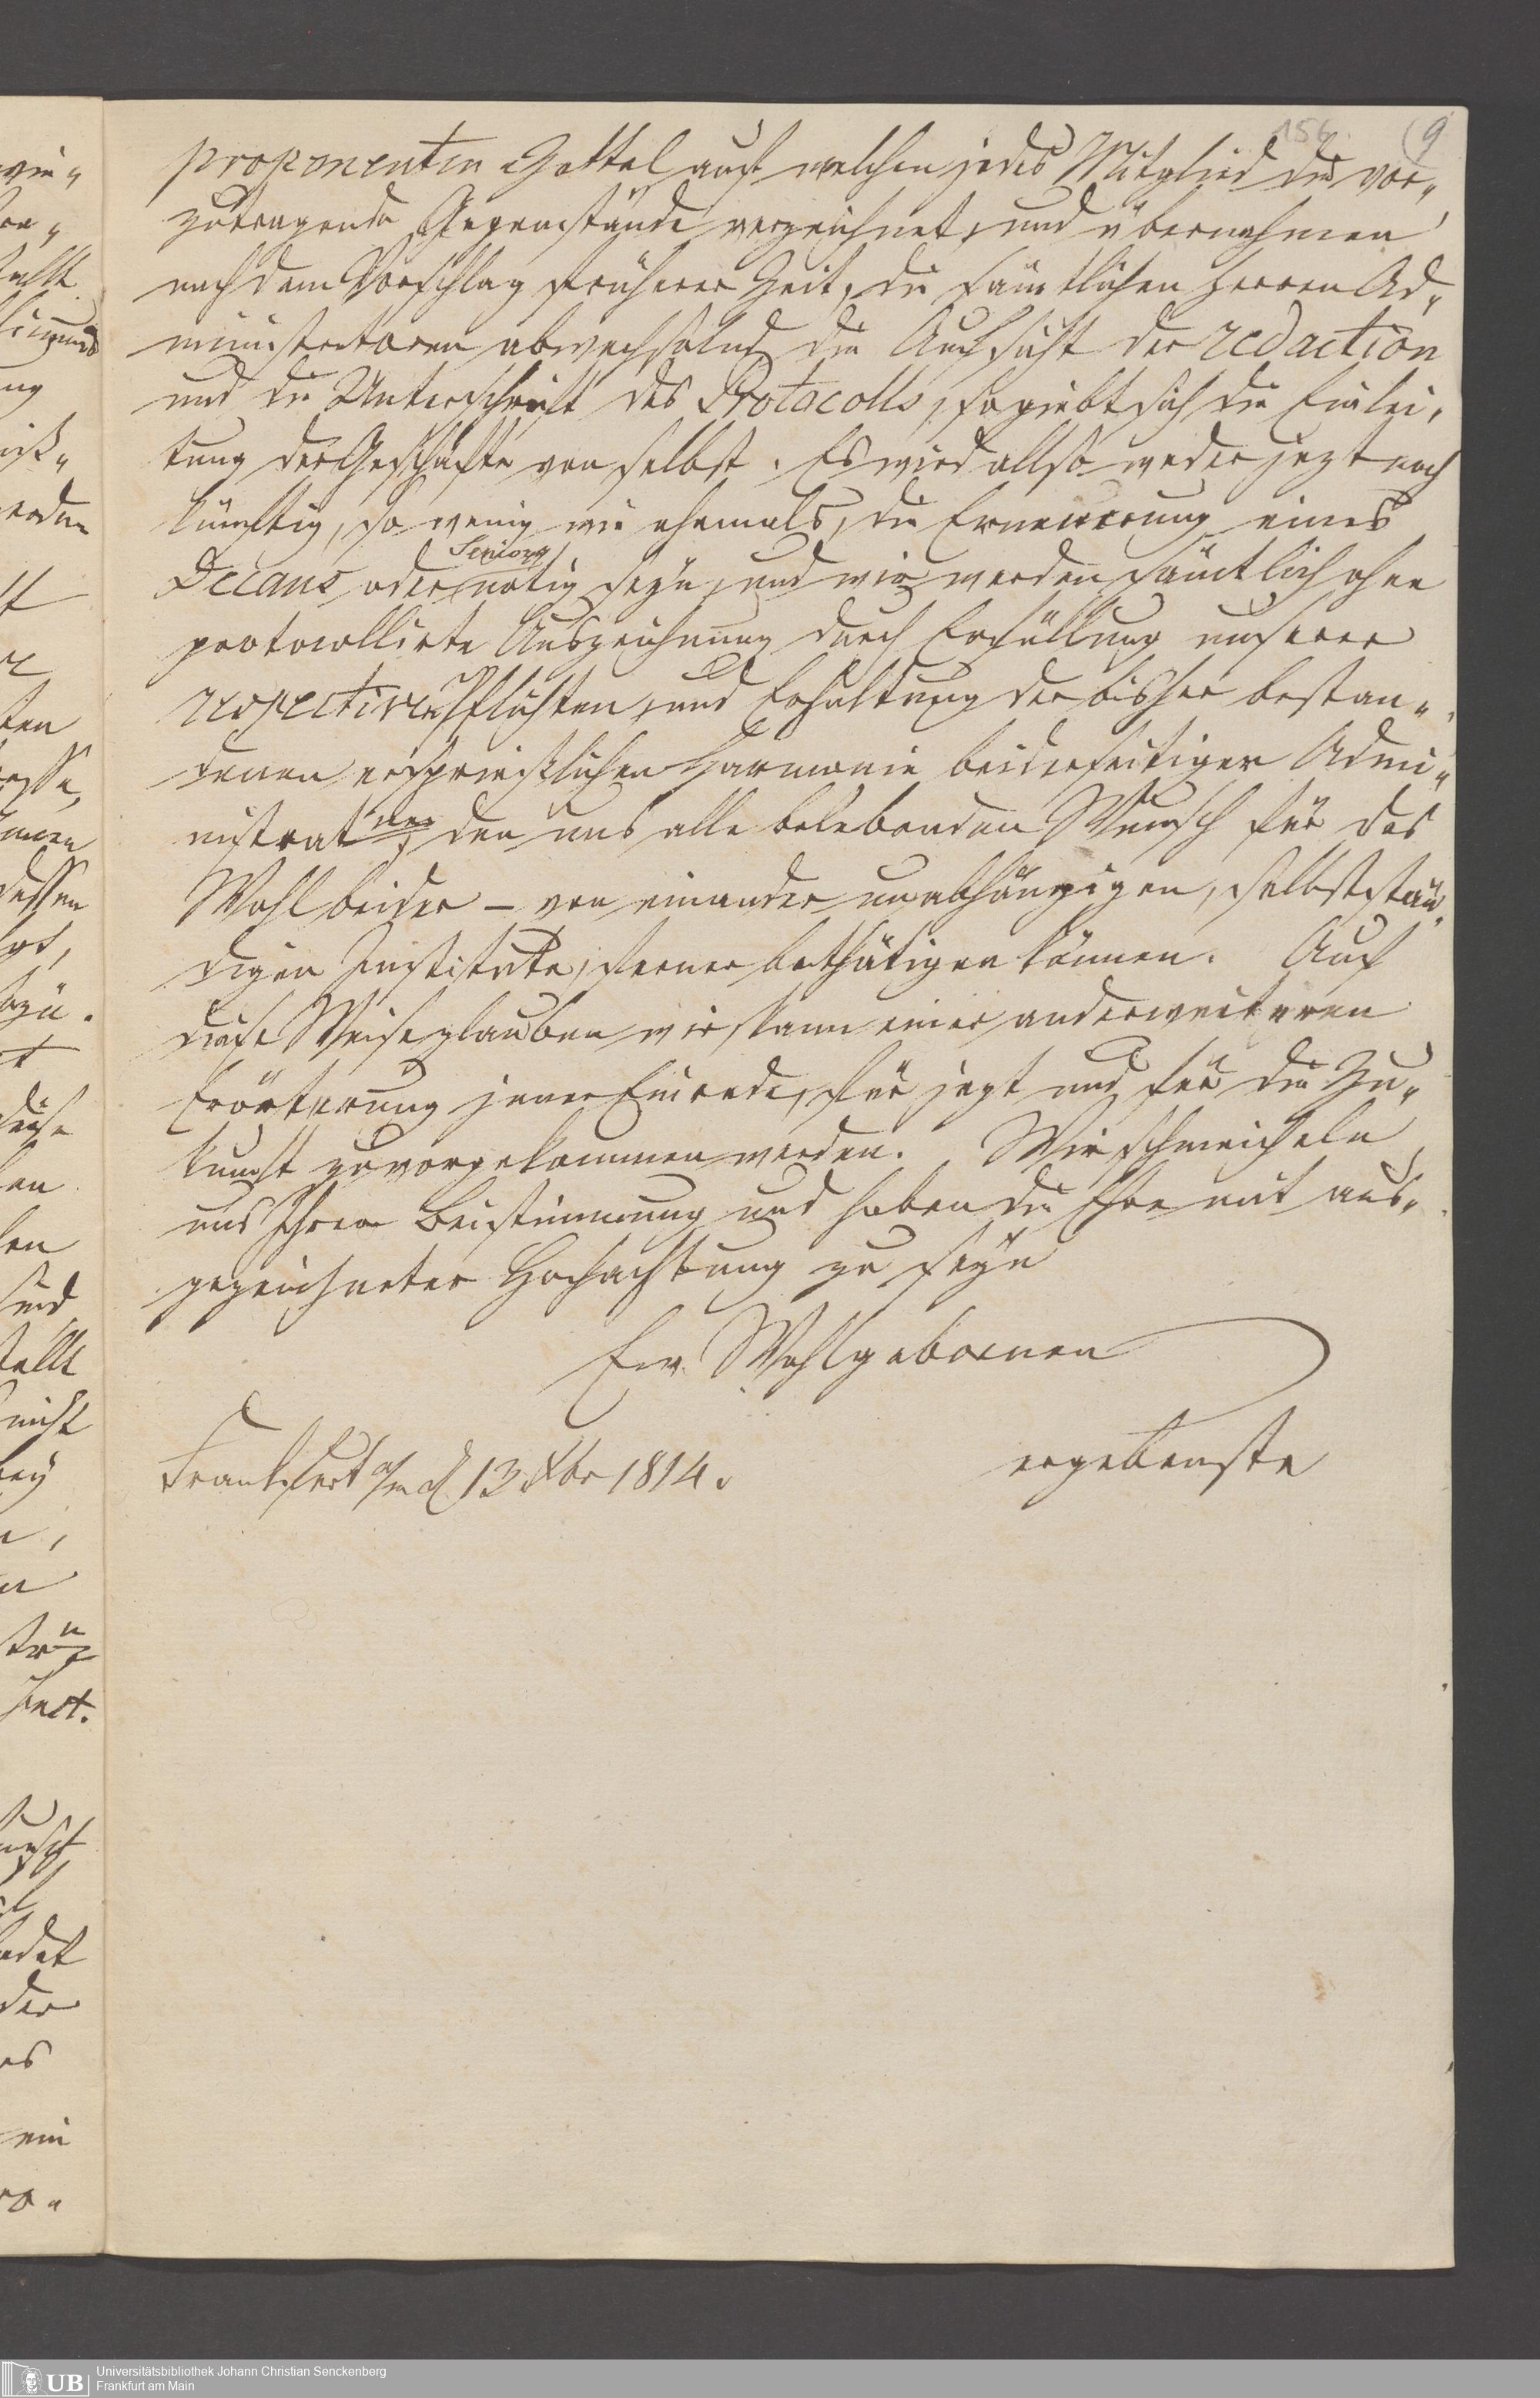 156. (9
proponenten Zettel auf welchen jedes Mitglied die vor„
zutragende Gegenstände verzeichnet, und übernehmen
nach dem Vorschlag früherer Zeit, die sämtlichen Herren Ad„
ministratoren abwechselnd die Aufsicht der redaction
und die Unterschrift des Protocolls, so giebt sich die Einlei„
tung der Geschäfte von selbst. Es wird allso weder jezt noch
künftig, so wenig wie ehemals, die Ernennung eines
Seniors
Decans oder nötig seyn, und wir werden sämtlich ohne
protocollirte Auszeichnung durch Erfüllung unserer
respectiven Pflichten, und Erhaltung der bisher bestan„
denen ersprießlichen Harmonie beiderseitiger Admi„
nistrat nen den uns alle belebenden Wunsch für das
Wohl beider – von einander unabhängigen, selbststän„
digen Institute, ferner bethätigen können. Auf
diese Weise glauben wir kann einer anderweiteren
Erörterung jener Einrede, für jezt und für die Zu„
kunft zuvorgekommen werden. Wir schmeicheln
uns Ihrer Beistimmung und haben die Ehre mit aus„
gezeichneter Hochachtung zu seyn
Ew. Wohlgebornen
Frankfurt a/m d 13 Xbr 1814.
ergebenste
Universitätsbibliothek Johann Christian Senckenberg
UB Frankfurt am Main